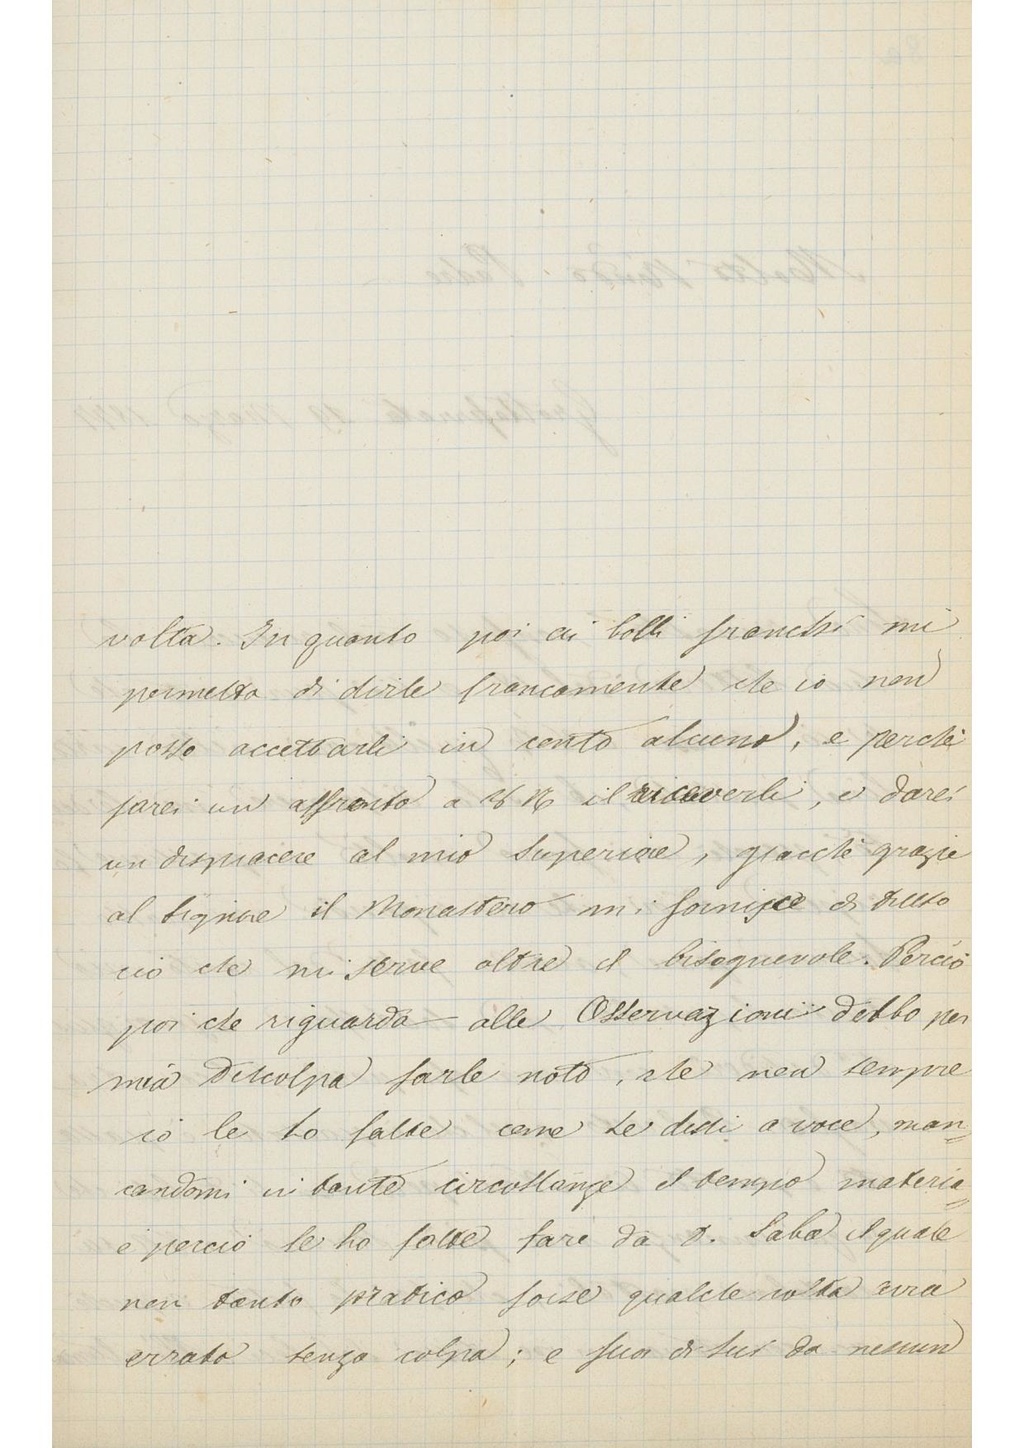 volta. In quanto poi ai bolli franchi mi
permetta di dirle francamente che io non
posso accettarli in conto alcuno, e perchè
farei un affronto a il riceverli, e darei
un dispiacere al mio Superiore, giacchè grazie
al Signore il Monastero mi fornisce di tutto
ciò che mi serve oltre il bisognevole. Perciò
poi che riguarda alle Osservazioni debbo per
mia discolpa farle noto, che non sempre
io le ho fatte come le dissi a voce, man=
candomi in tante circostanze il tempo materia=
e perciò le ho fatte fare da D. Saba il quale
non tanto pratico forse qualche volta avrà
errato senza colpa; e fuor di lui da nessun